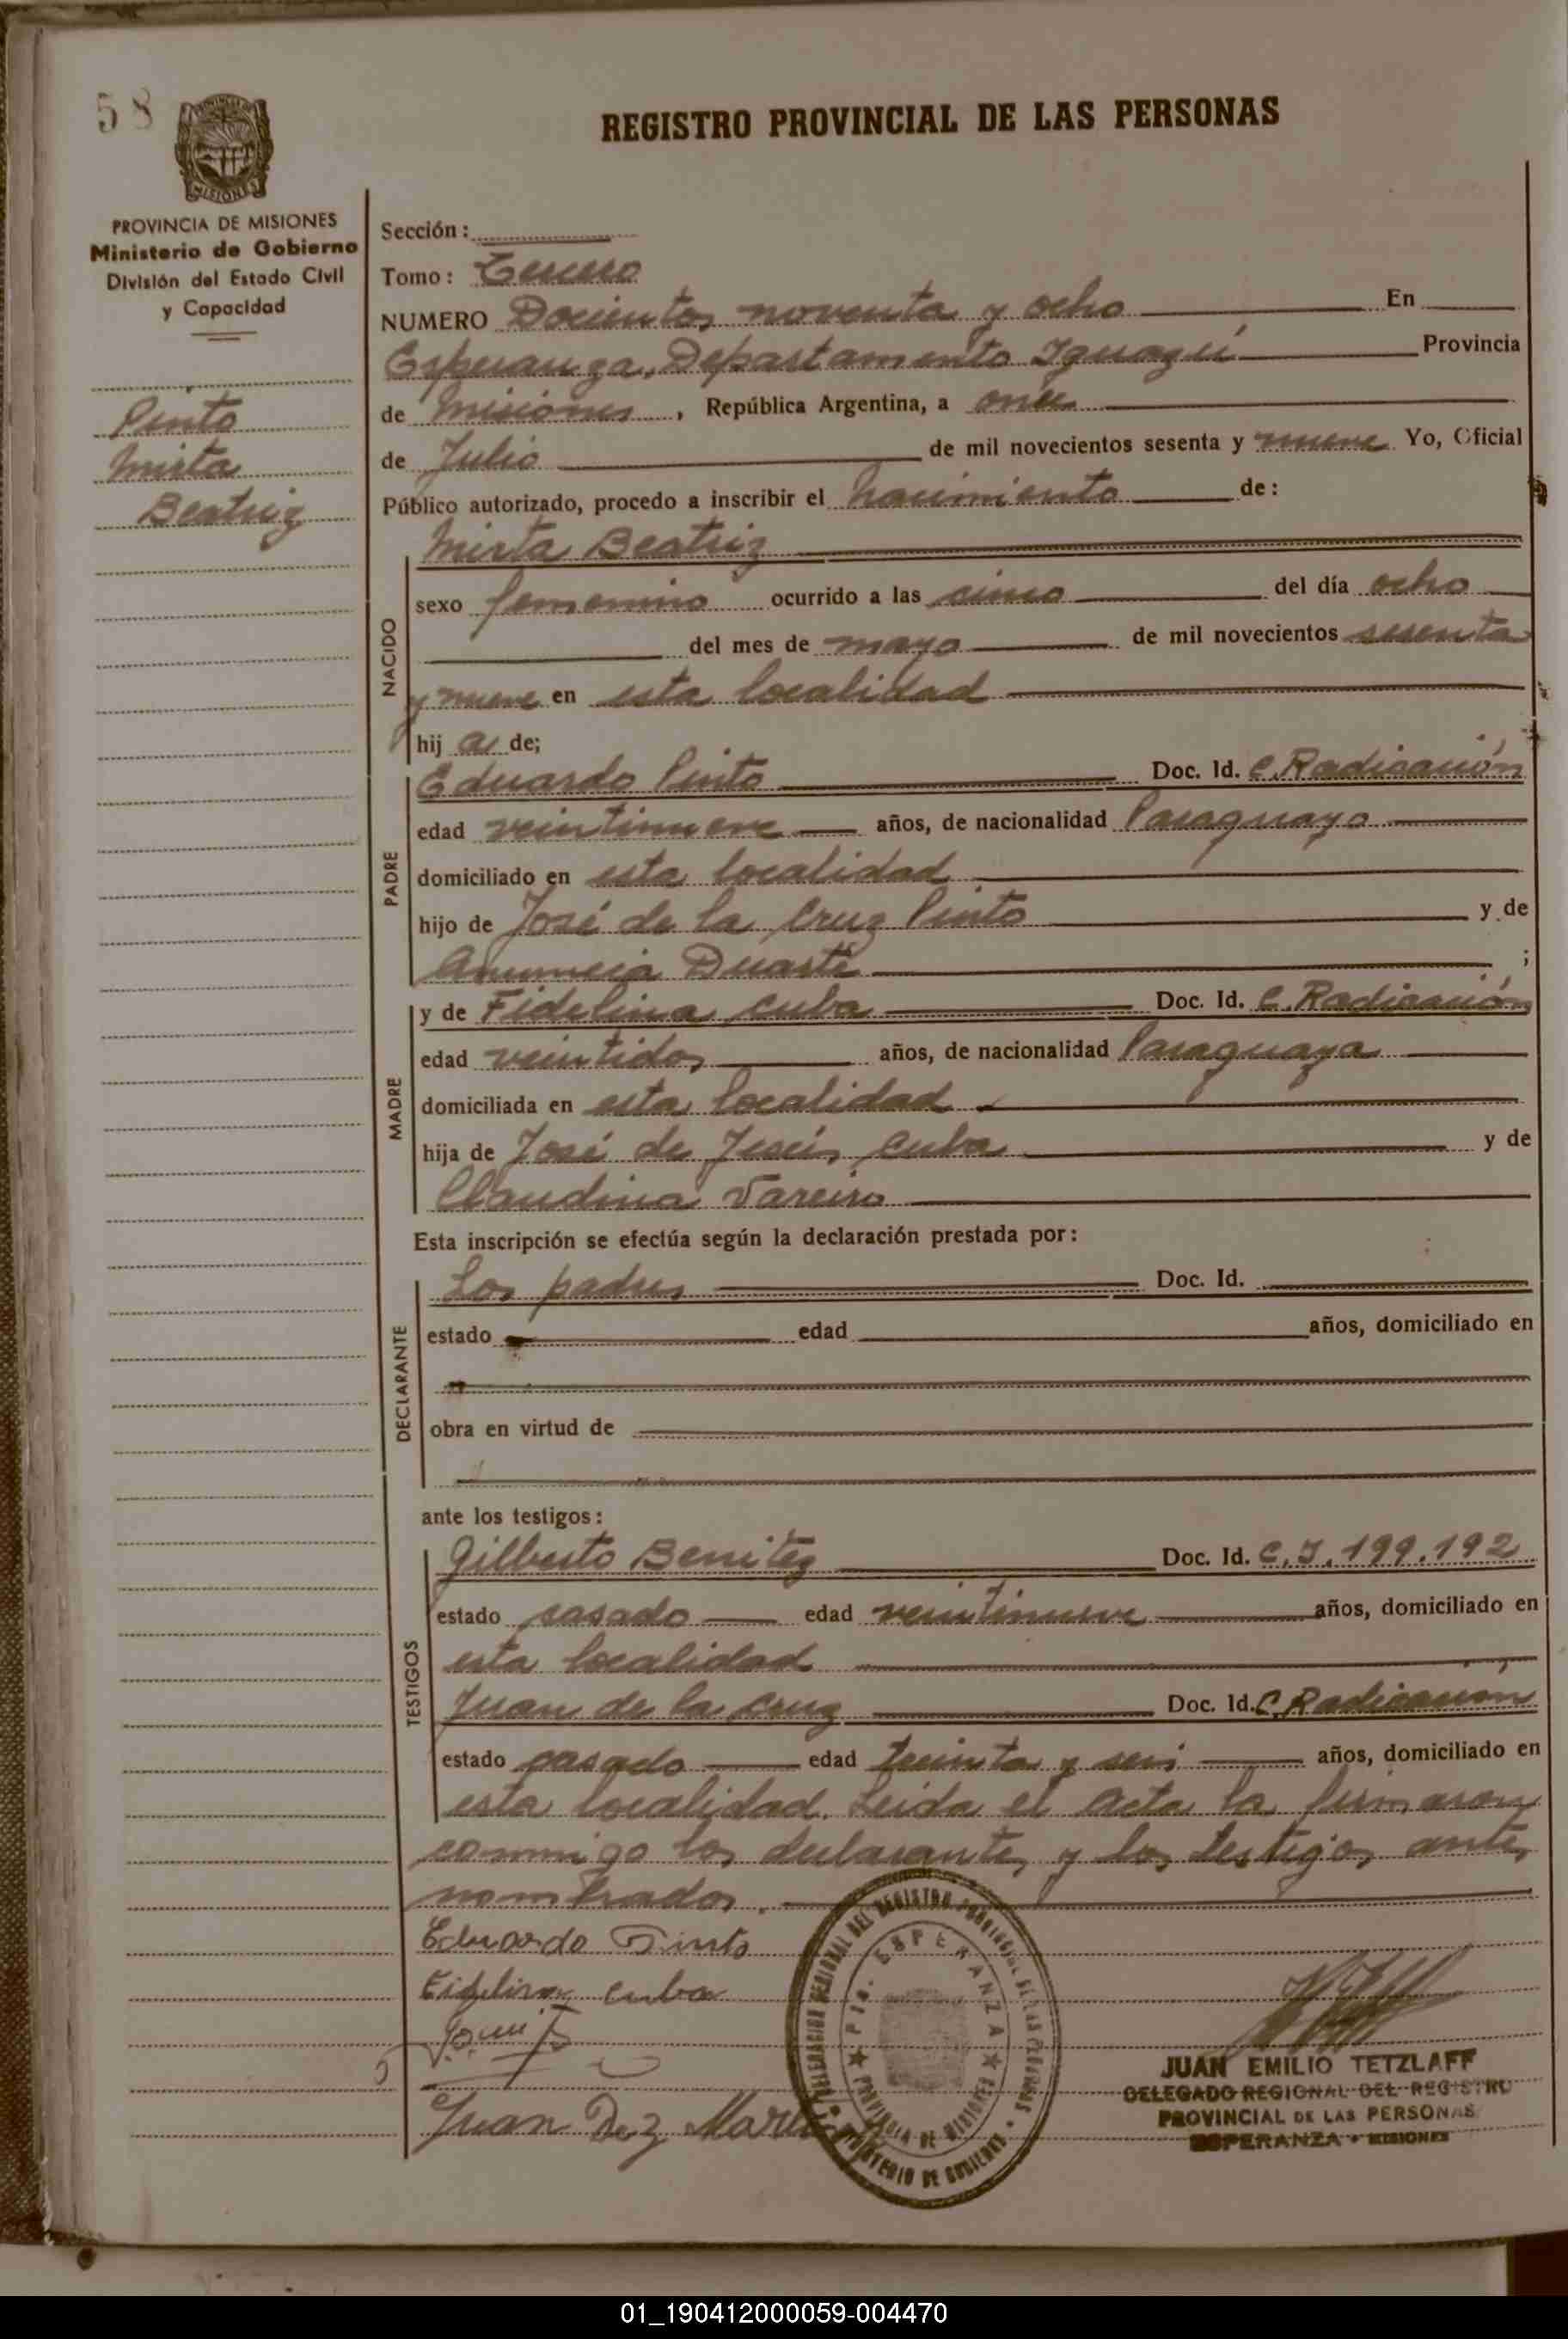 58
REGISTRO PROVINCIAL DE LAS PERSONAS
MISIONES
PROVINCIA DE MISIONES
Ministerio de Gobierno
División del Estado Civil
y Capacidad
Pinto
Mirta
Beatriz
Sección:
Tomo: Tercero
NUMERO Docientos noventa y ocho En
Esperanza, Departamento Iguazú Provincia
de Misiones, República Argentina, a once
de Julio de mil novecientos sesenta y nueve Yo, Oficial
Público autorizado, procedo a inscribir el Nacimiento de:
NACIDO
Mirta Beatriz
sexo femenino ocurrido a las cinco del día ocho
del mes de mayo de mil novecientos sesenta
y nueve en esta localidad
hij a de;
PADRE
Eduardo Pinto Doc. Id. C. Radicación
edad veintinueve años, de nacionalidad Paraguayo
domiciliado en esta localidad
hijo de José de la Cruz Pinto y de
Anuncia Duarte ;
MADRE
y de Fidelina Cuba Doc. Id. C. Radicación
edad veintidos años, de nacionalidad Paraguaya
domiciliada en esta localidad
hija de José de Jesús Cuba y de
Claudina Vareiro
Esta inscripción se efectúa según la declaración prestada por:
DECLARANTE
Los padres Doc. Id.
estado edad años, domiciliado en
obra en virtud de
ante los testigos:
TESTIGOS
Gilberto Benitez Doc. Id. C.I. 199.192
estado casado edad veintinueve años, domiciliado en
esta localidad
Juan de la Cruz Doc. Id. C. Radicación
estado casado edad treinta y seis años, domiciliado en
esta localidad. Leida el acta la firmaron
conmigo los declarantes y los testigos antes
nombrados.
Eduardo Pinto
Fidelina Cuba
Juan Dez
DELEGACION REGIONAL DEL REGISTRO PROVINCIAL DE LAS PERSONAS
MINISTERIO DE GOBIERNO
Pto. ESPERANZA
PROVINCIA DE MISIONES
JUAN EMILIO TETZLAFF
DELEGADO REGIONAL DEL REGISTRO
PROVINCIAL DE LAS PERSONAS
ESPERANZA - MISIONES
01_190412000059-004470